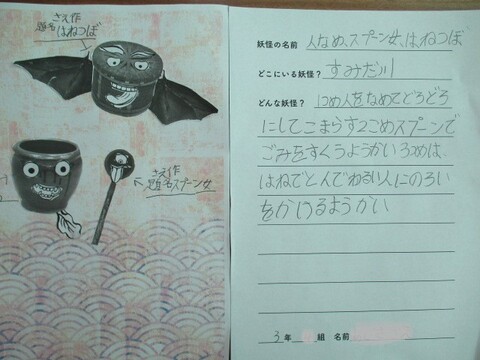 さえ作
題名はねつぼ
さえ作
題名スプーン女
妖怪の名前 人なめ、スプーン女、はねつぼ
どこにいる妖怪？ すみだ川
どんな妖怪？ 1こめ人をなめてどろどろ
にしてこまらす2こめスプーンで
ごみをすくうようかい3こめは、
はねでとんでわるい人にのろい
をかけるようかい
3年 組 名前